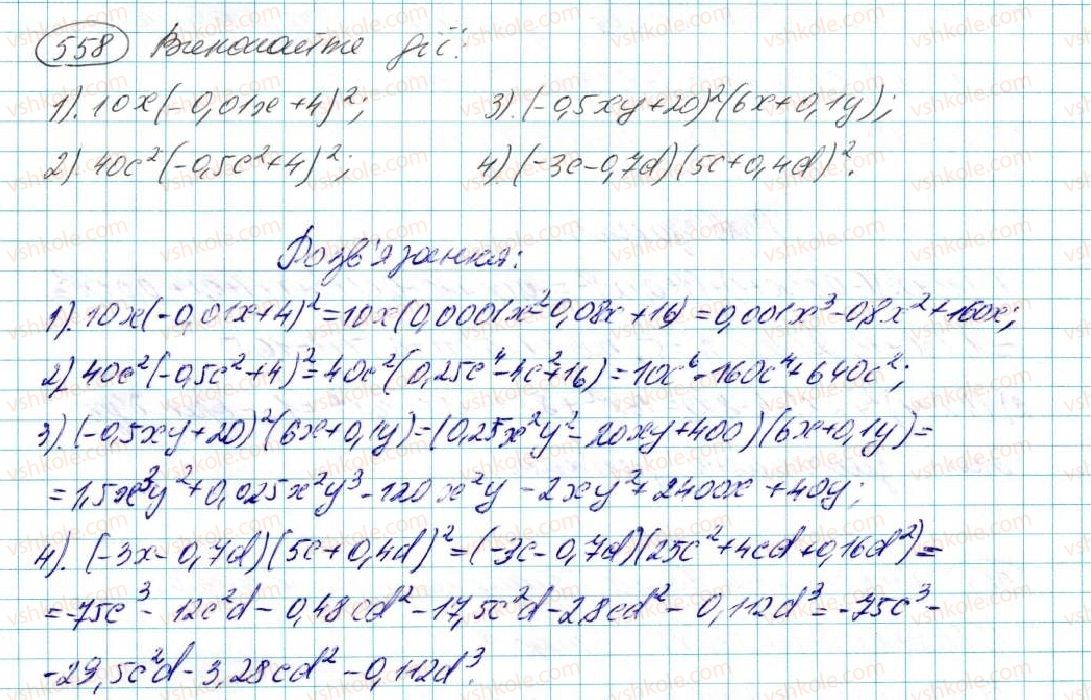 558 Виконайте дії:
1). 10x(-0,01x+4)²; 3). (-0,5xy+20)²(6x+0,1y);
2). 40c²(-0,5c²+4)²; 4). (-3c-0,7d)(5c+0,4d)².
Розв'язання:
1). 10x(-0,01x+4)²=10x(0,0001x²-0,08x+16)=0,001x³-0,8x²+160x;
2) 40c²(-0,5c²+4)²=40c²(0,25c⁴-4c²+16)=10c⁶-160c⁴+640c²;
3). (-0,5xy+20)²(6x+0,1y)=(0,25x²y²-20xy+400)(6x+0,1y)=
=1,5x³y²+0,025x²y³-120x²y-2xy²+2400x+40y;
4). (-3x-0,7d)(5c+0,4d)²=(-3c-0,7d)(25c²+4cd+0,16d²)=
=-75c³-12c²d-0,48cd²-17,5c²d-2,8cd²-0,112d³=-75c³-
-29,5c²d-3,28cd²-0,112d³.